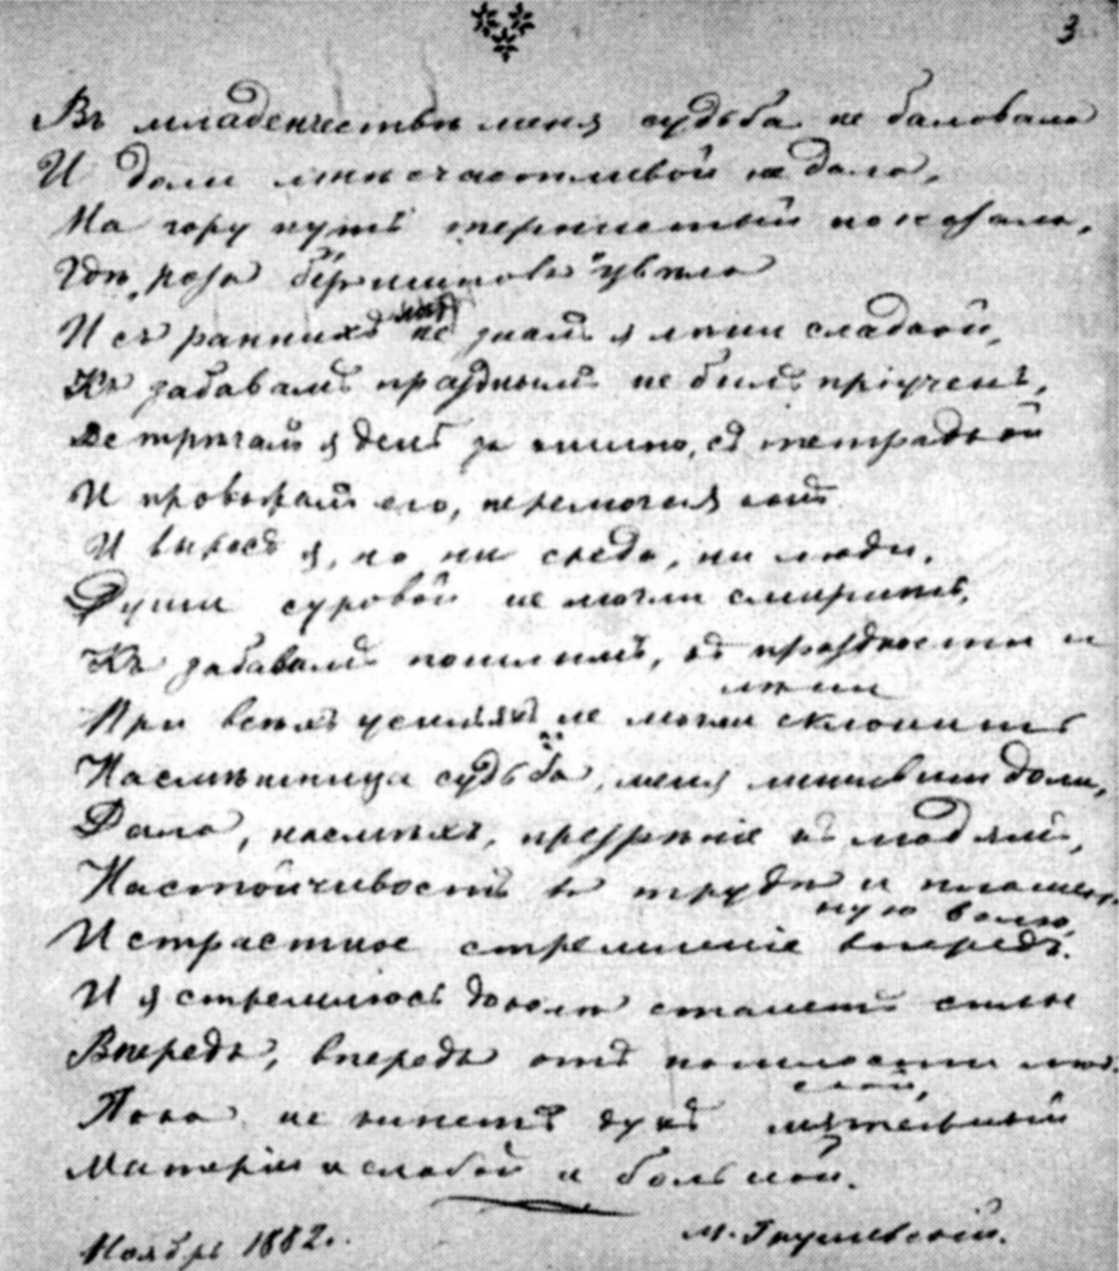 3
Въ младенчествѣ меня судьба не баловала
И доли мнѣ счастливой не дала,
На гору путь тернистый показала,
Гдѣ роза цвѣла
И съ раннихъ не зналъ я лѣни сладкой,
Къ забавамъ празднымъ не былъ пріученъ,
Встрѣчалъ я день за книгою, съ тетрадкой
И провожалъ его, перемогая сонъ
И выросъ я, но ни среда, ни люди,
Души суровой не могли смирить,
Къ забавамъ пошлымъ, къ праздности и
лѣни
При всѣхъ усиліяхъ не могли склонить
Насмѣшница судьба, меня лишивши доли,
Дала, насмѣхъ, презрѣніе къ людямъ,
Настойчивость въ трудѣ и пламен-
ную волю,
И страстное стремленіе впередъ.
И я стремлюсь доколѣ станетъ силы
Впередъ, впередъ отъ пошлости люд-
ской,
Пока не кинетъ духъ мятежный
Матеріи и слабой и больной.
Ноябрь 1882.
М. Грушевскій.